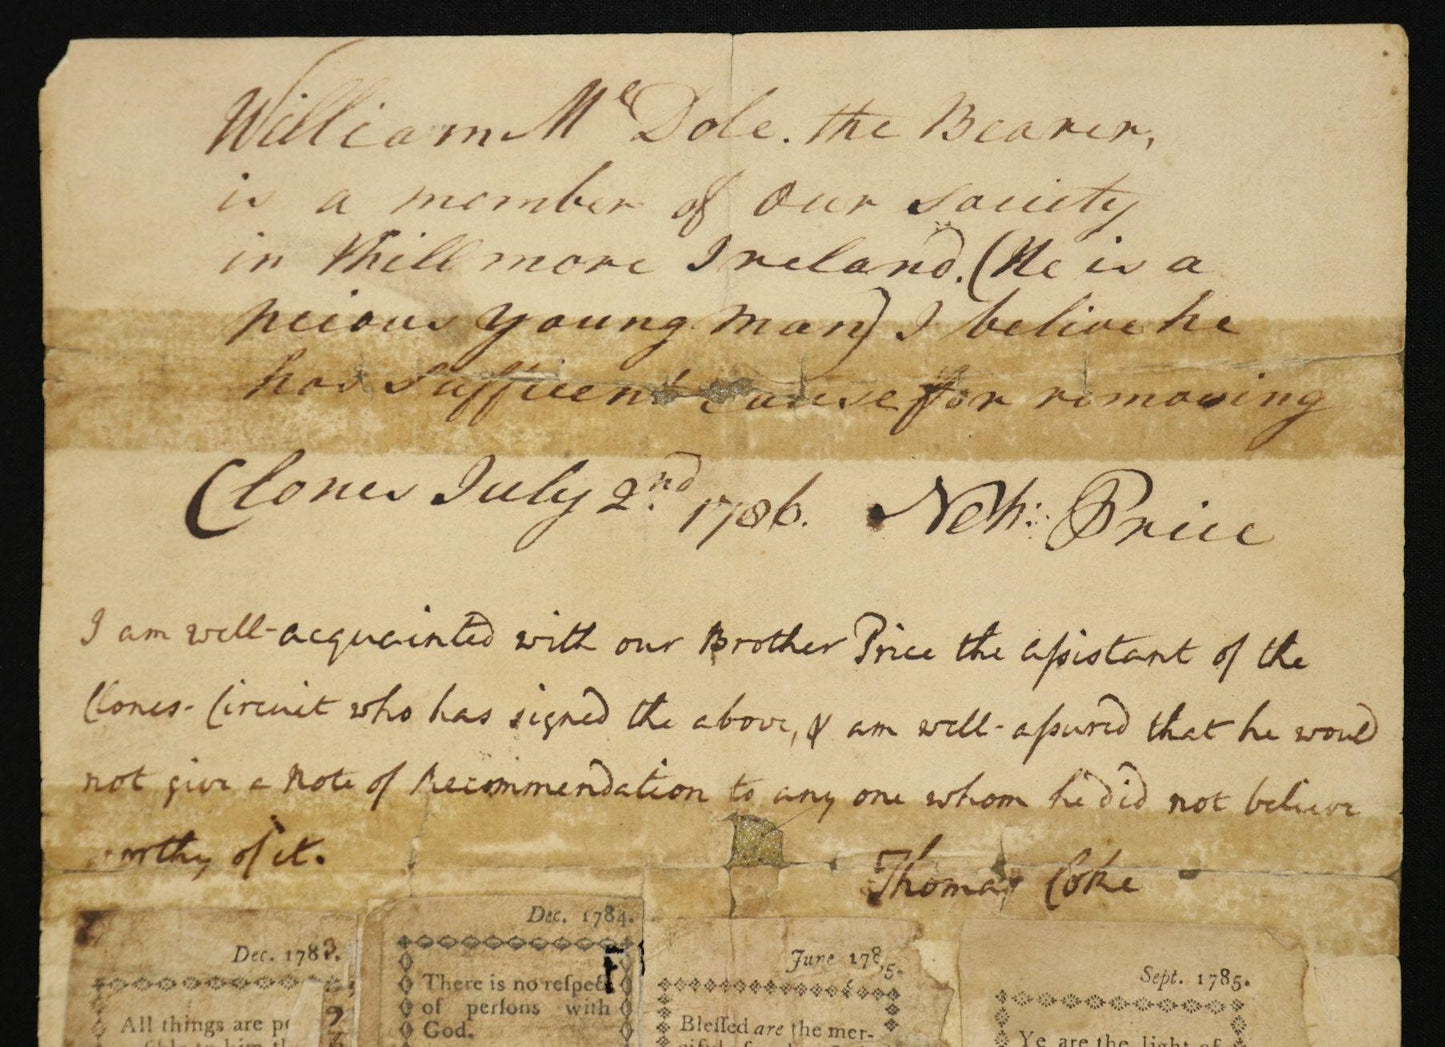 William Mc Dole. the Bearer,
is a member of Our Society
in Khillmore Ireland. (He is a
peious young man) I believe he
has sufficent cause for removing
Clones July 2nd. 1786. Neh: Price
I am well-acquainted with our Brother Price the aſsistant of the
Clones-Circuit who has signed the above, & am well-aſsured that he would
not give a Note of Recommendation to any one whom he did not believe
worthy of it.
Thomas Coke
Dec. 1783.
All things are
Dec. 1784.
There is no reſpect
of perſons with
God.
June 1785.
Bleſſed are the mer-
Sept. 1785.
Ye are the light of